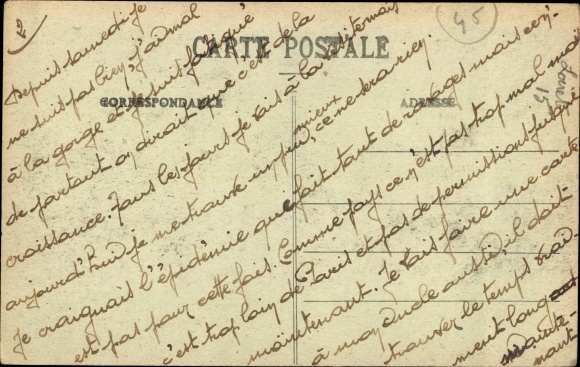 2
45
CARTE POSTALE
CORRESPONDANCE
ADRESSE
Depuis samedi je
ne suis pas bien, j'ai mal
à la gorge et je suis fatigué
de partout on dirait que c'est de la
croissance. Tous les jours je vais à la visite mais
aujourd'hui je me trouve un peu mieux, ce ne sera rien.
Je craignais l'épidémie qui fait tant de ravages mais ce n'
est pas pour cette fois. Comme pays ce n'est pas trop mal mais
c'est trop loin de Paris et pas de permissions jusque
maintenant. Je vais faire une carte
à mon Oncle aussi, il doit
trouver le temps vrai-
ment long
mainte-
nant
15